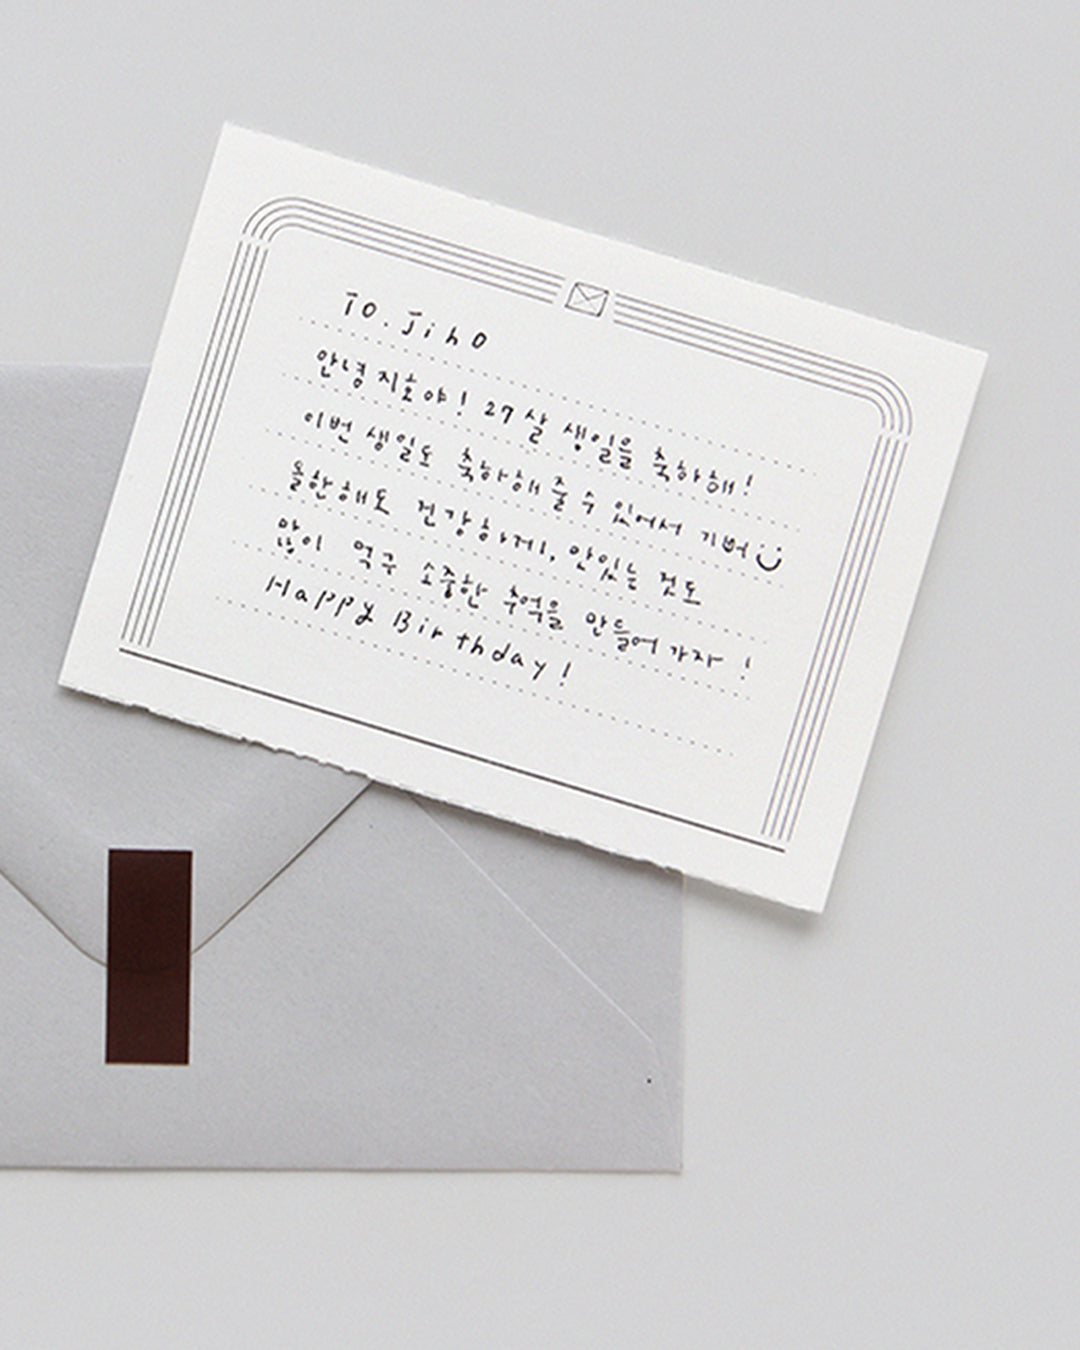 To. Jiho
안녕 지호야! 27살 생일을 축하해!
이번 생일도 축하해 줄 수 있어서 기뻐
올한해도 건강하게, 맛있는 것도
많이 먹구 소중한 추억을 만들어 가자!
Happy Birthday!